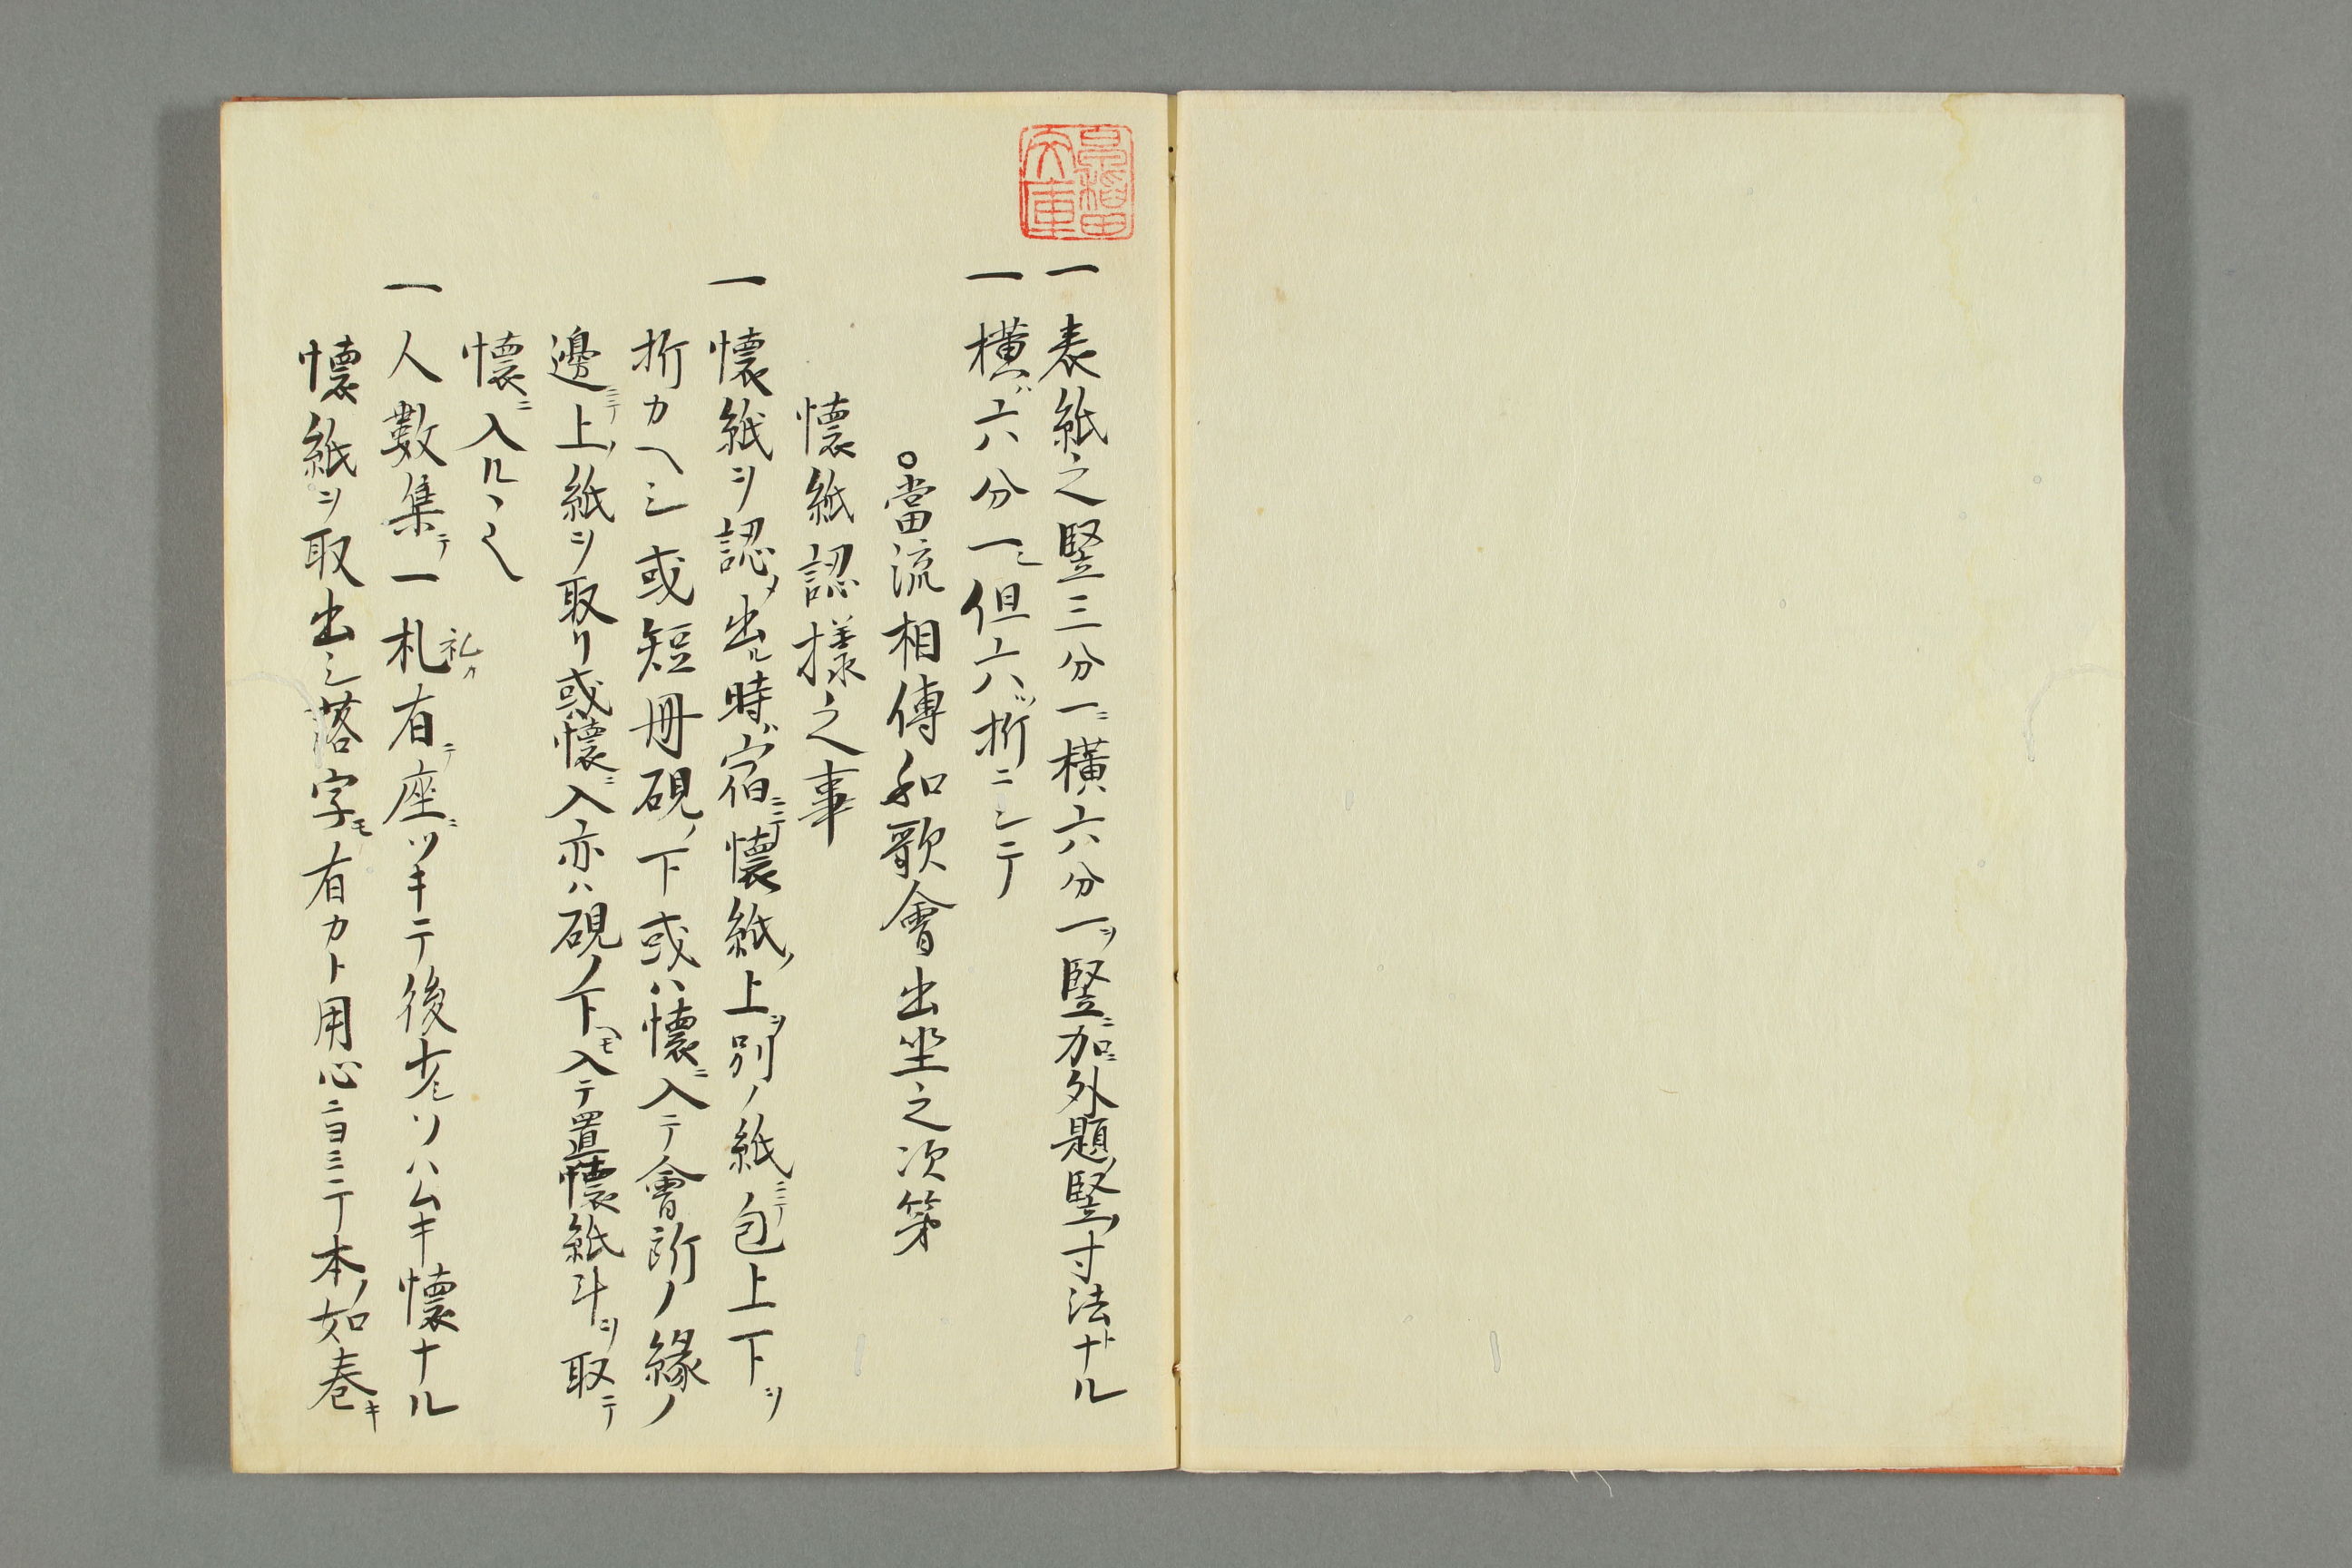 一表紙之竪三分一ニ横六分一ヲ竪ニ加ニ外題ノ竪ノ寸法トナル
一横ハ六分一ニ但六ツ折ニシテ
○當流相傳和歌會出坐之次第
懐紙認様之事
一懐紙ヲ認メ出ル時ハ宿ニテ懐紙ノ上ヲ別ノ紙ニテ包上下ヲ
折カヘシ或短冊硯ノ下或ハ懐ニ入テ會所ノ縁ノ
邊ニテ上ノ紙ヲ取リ或懐ニ入亦ハ硯ノ下ヘモ入テ置懐紙斗ヲ取テ
懐ニ入ルヽ也
一人數集テ一札有テ座ニツキテ後
礼カ
ソハムキ懐ナル
懐紙ヲ取出シ落字モ有カト用心ニヨミテ本ノ如巻キ
文庫